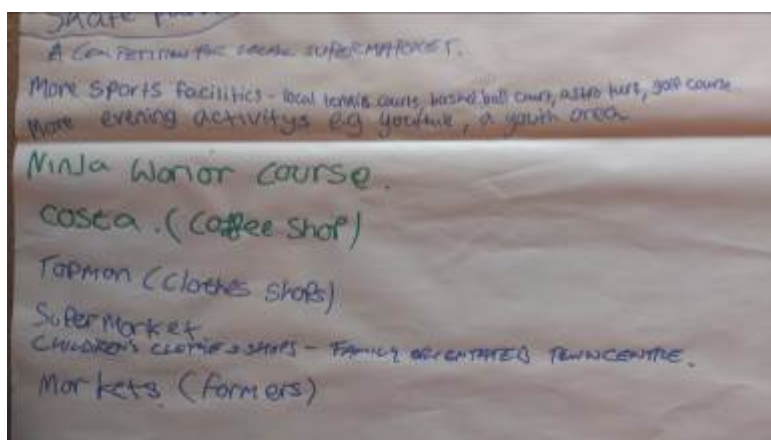 Skate
A COMPETITION FOR LOCAL SUPERMARKET.
More Sports facilities - local tennis courts, basket ball court, astro turf, golf course.
More evening activitys e.g youthie, a youth area
Ninja Warior course.
costa. (Coffee shop)
Topman (Clothes shops)
Supermarket
CHILDREN'S CLOTHES SHOPS - FAMILY ORIENTATED TOWN CENTRE.
Markets (farmers)